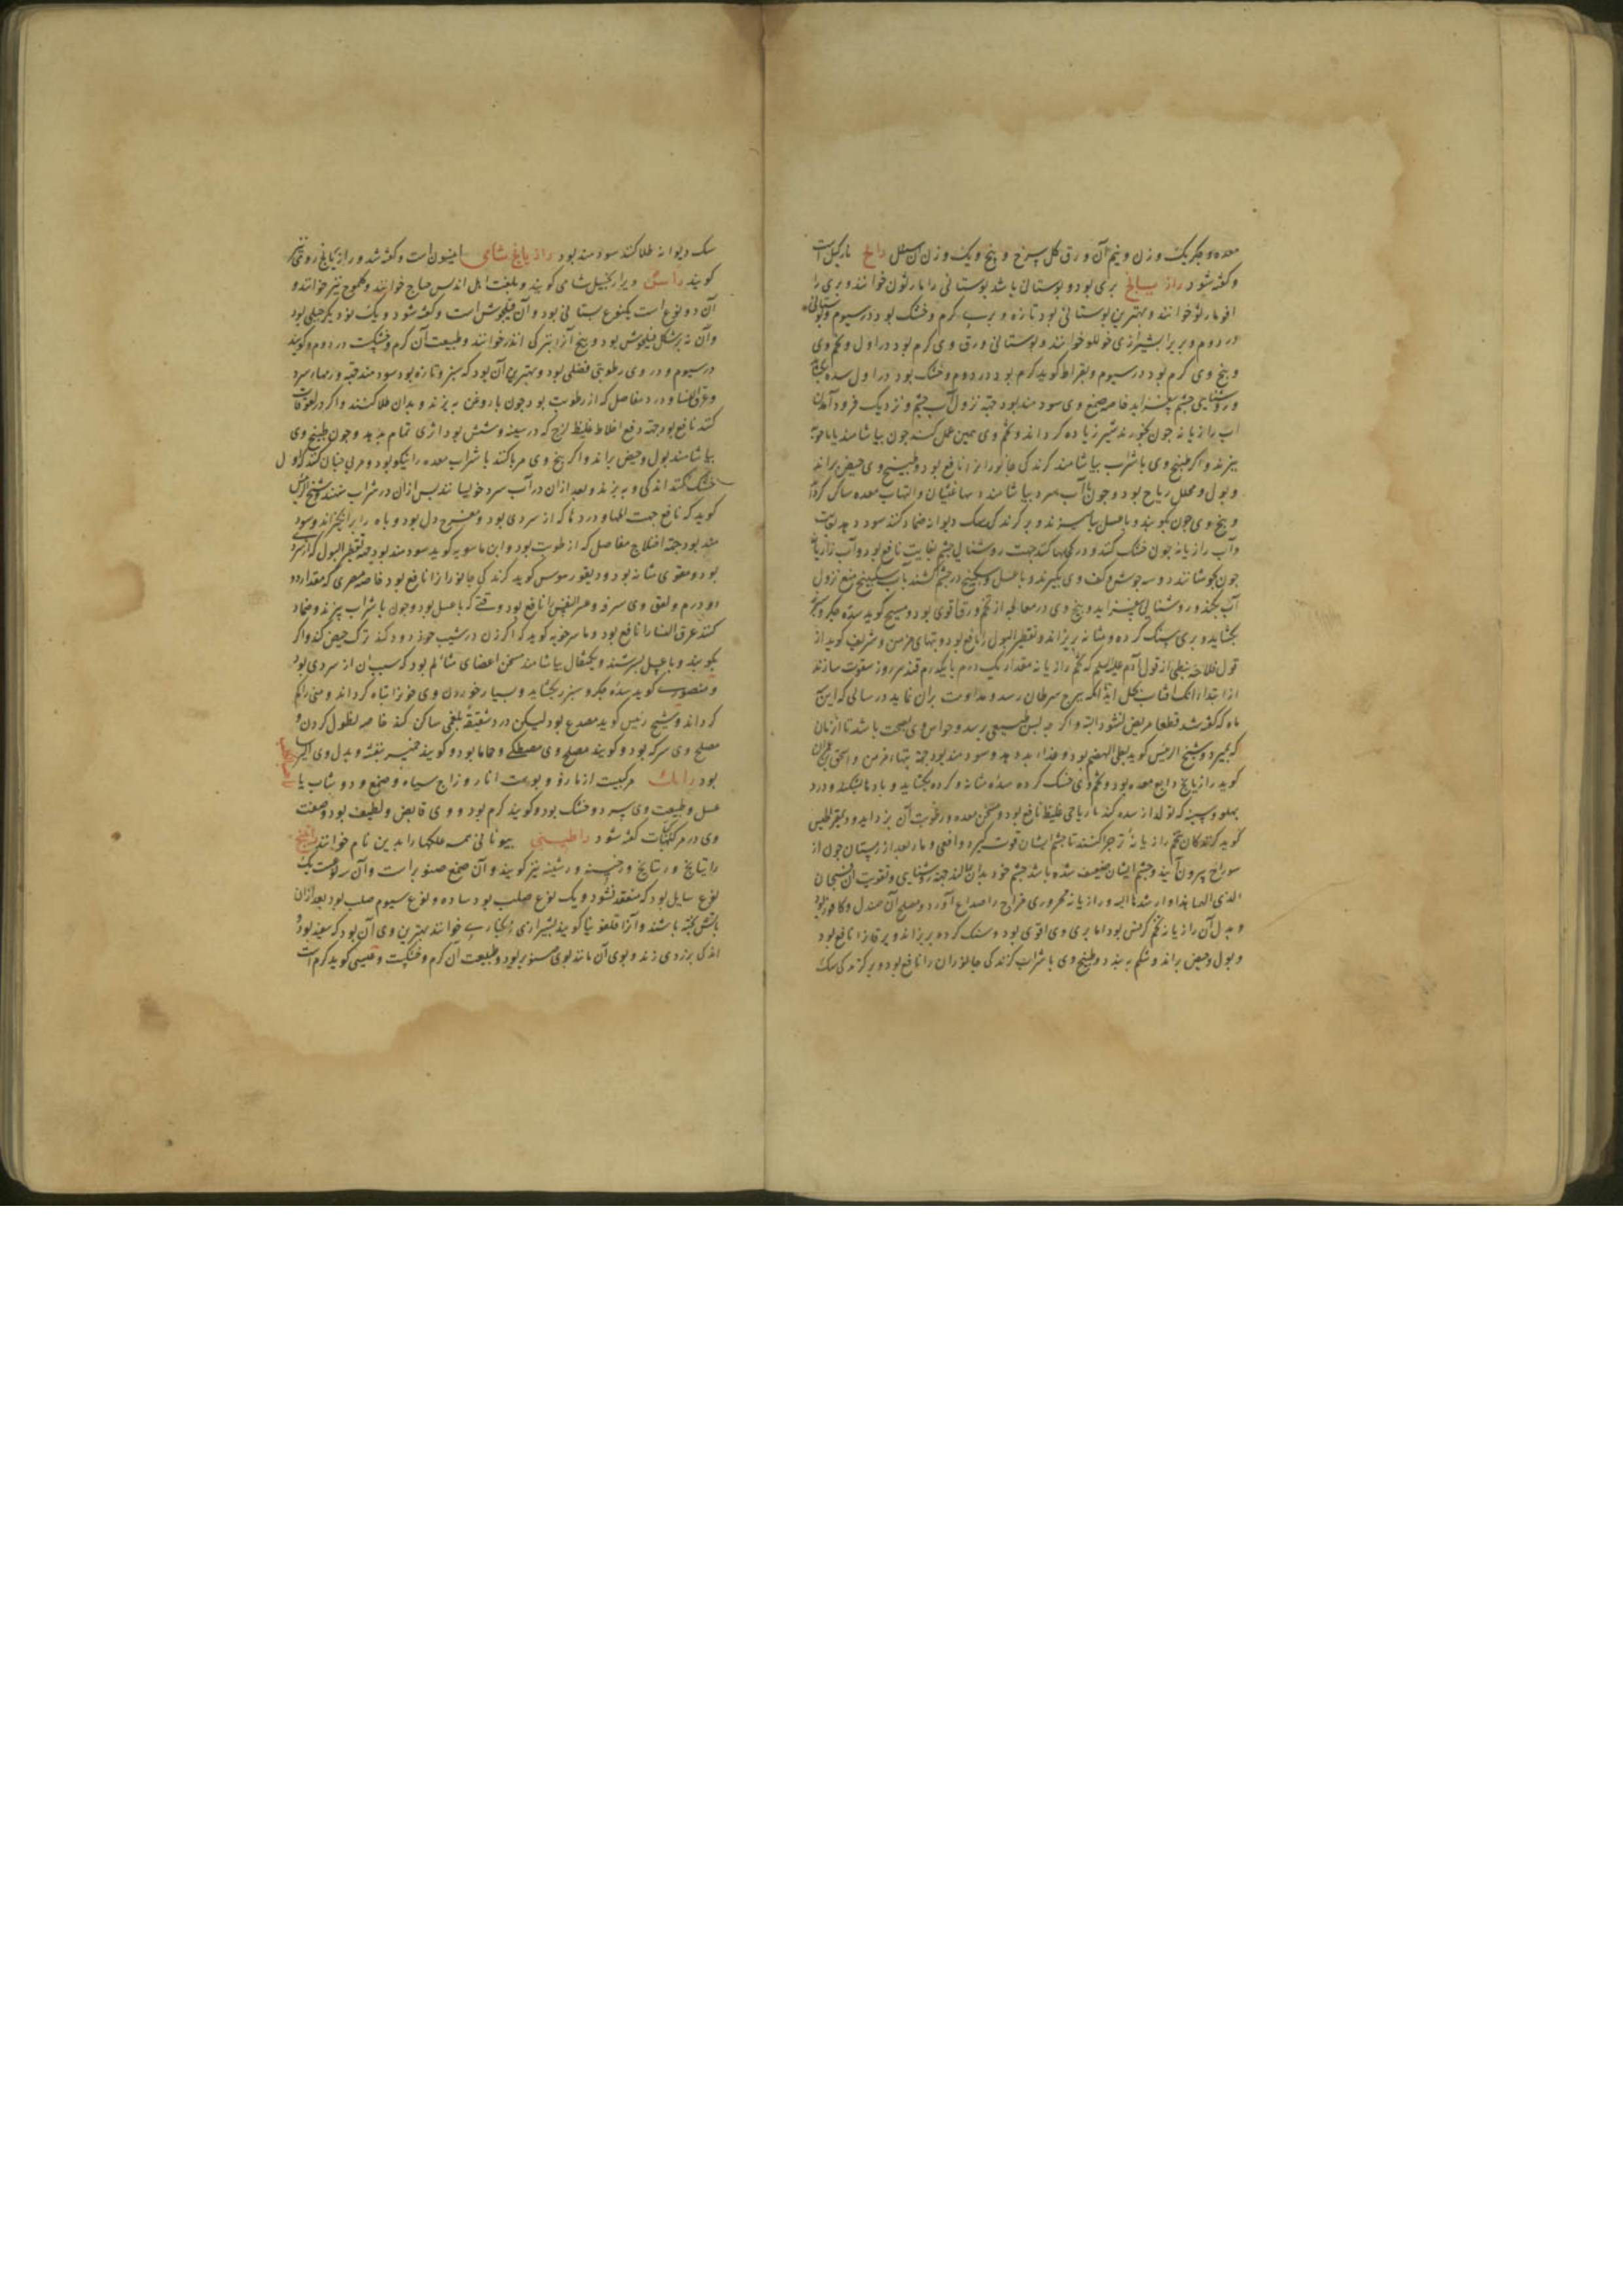 معده و جگر یک وزن و نیم آن ورق گل سرخ و بنج و یک وزن آن سنبل رانج نارکیل است
و گفته شود رازیانج بری بود و بوستانی باشد بوستانی را مارثون خوانند و بری را
خوانند و بهترین بوستانی بود تازه و بری گرم و خشک بود در سیوم و بوستانی
در دوم و بری را بشیرازی خوانند و بوستانی ورق وی گرم بود در اول و تخم وی
و بیخ وی گرم بود در سیوم و بقراط کوید گرم بود در دوم و خشک بود در اول سده بکشاید
و روشنایی چشم بیفزاید خاصه صمغ وی سودمند بود جهة نزول آب چشم و نزدیک فرود آمدن
آب رازیانه چون بخورند شیر زیاده کرداند و تخم وی همین عمل کند چون بیاشامند یا با جو
بپزند و اگر طبیخ وی با شراب بیاشامند کزندگی جانوران را نافع بود و طبیخ وی حیض براند
و بول و محلل ریاح بود و چون با آب سرد بیاشامند غشیان و التهاب معده ساکن کرداند
و بیخ وی چون بکوبند و با عسل بیامیزند و بر کزندگی سک دیوانه ضماد کنند سود دهد بغایت
و آب رازیانه چون خشک کنند و در کحلها کنند جهت روشنایی چشم بغایت نافع بود و آب رازیانه
چون بجوشانند دو سه جوش و کف وی بگیرند و با عسل و سکبینج در چشم کشند باب سکبینج منع نزول
آب بکند و روشنایی بیفزاید و بیخ وی در معالجه از تخم و ورق اقوی بود و مسیح کوید سده جگر و سپرز
بکشاید و بری سنک کرده و مثانه بریزاند و تقطیر البول را نافع بود و تبهای مزمن و شریف کوید از
قول فلاحه نبطی از قول آدم علیه السلم که تخم رازیانه مقدار یک درم با یکدرم قند هر روز سفوف سازند
از ابتداء آنکه آفتاب بحمل آید تا آنکه ببرج سرطان رسد و مداومت بران نماید در سالی که این
ماه که گفته شد قطعا مریض نشود البته و اگر به سن طبیعی برسد و حواس وی بصحت باشد تا آن زمان
که بمیرد و شیخ الرییس کوید بطی الهضم بود و غذاء بد دهد و سودمند بود جهة تبهاء مزمن و اسحق بن عمران
کوید رازیانج دابغ معده بود و تخم وی خشک کرده سده مثانه و کرده بکشاید و بادها بشکند و درد
پهلو و سینه که تولد از سده کند با ریاحی غلیظ نافع بود و مسخن معده و رطوبت آن بزداید و دیمقراطیس
کوید کزندکان تخم رازیانه تر چرا کنند تا چشم ایشان قوت کیرد و افعی و مار بعد از زمستان چون از
سوراخ بیرون آیند و چشم ایشان ضعیف شده باشد چشم خود بدان مالند جهة روشنایی و تقویت آن فسبحان
الذی الهمها بذا و ارشدها الیه و رازیانه محروری مزاج را صداع آورد و مصلح آن صندل و کافور بود
و بدل آن رازیانه تخم کرفس بود اما بری وی اقوی بود و سنک کرده بریزاند و یرقان را نافع بود
و بول و حیض براند و شکم ببندد و طبیخ وی با شراب کزندگی جانوران را نافع بود و بر کزندگی سک
سک دیوانه طلا کنند سودمند بود رازیانج شامی انیسون است و گفته شد و رازیانج رومی نیز
کویند راسن ویرا زنجبیل شامی کویند و بلغت اهل اندلس جناح خوانند و نیز خوانند و
آن دو نوع است یکنوع بستانی بود و آن فیلجوش است و گفته شود و یک نوع دیگر جبلی بود
و آن نه بر شکل فیلجوش بود و بیخ آنرا بترکی اندز خوانند و طبیعت آن گرم و خشکست در دوم و کویند
در سیوم و در وی رطوبتی فضلی بود و بهترین آن بود که سبز و تازه بود سودمند جهة ورمهاء سرد
و عرق النسا و درد مفاصل که از رطوبت بود چون با روغن بپزند و بدان طلا کنند و اگر در لعوقات
کنند نافع بود جهة دفع اخلاط غلیظ لزج که در سینه و شش بود اثری تمام بدهد و چون طبیخ وی
بیاشامند بول و حیض براند و اگر بیخ وی مربا کنند با شراب معده را نیکو بود و مربی چنان کنند که اول
خشک کنند اندکی و بپزند و بعد ازان در آب سرد خویسانند پس ازان در شراب نهند و شیخ الرییس
کوید که نافع جهت المها و دردها که از سردی بود و مفرح دل بود و باه را برانکیزاند و سود
مند بود جهة اختلاج مفاصل که از رطوبت بود و ابن ماسویه کوید سودمند بود جهة تقطیر البول که از سردی
بود و مقوی مثانه بود و دیسقوریدوس کوید کزندگی جانوران را نافع بود خاصه مصری که مقدار دو
دو درم و لعق وی سرفه و عسر النفس را نافع بود وقتی که با عسل بود و چون با شراب بپزند و ضماد
کنند عرق النسا را نافع بود و ماسرجویه کوید که اگر زن در شیب خود دود کند ترک حیض کند و اگر
بکوبند و با عسل بسرشند و یکمثقال بیاشامند مسخن اعضای متالم بود که سبب آن از سردی بود
و منصوری کوید سده جگر و سپرز بکشاید و بسیار خوردن وی خون را تباه کرداند و منی را کم
کرداند و شیخ رئیس کوید مصدع بود لیکن درد شقیقه بلغمی ساکن کند خاصه نطول کردن و
مصلح وی سرکه بود و کویند مصلح وی مصطکی و حاما بود و کویند خمیره بنفشه و بدل وی ایرسا
بود رامک مرکبیست از مازو و پوست انار و زاج سیاه و صمغ و دوشاب یا
عسل و طبیعت وی سرد و خشک بود و کویند گرم بود و وی قابض و لطیف بود و صفت
وی در مرکبات گفته شود راطینی بیونانی همه علکها را بدین نام خوانند راتینج
راتیانج و ریتانج و رخینه و رشینه نیز کویند و آن صمغ صنوبر است و آن سه نوعست یک
نوع سایل بود که منعقد نشود و یک نوع صلب بود ساده و نوع سیوم صلب بود بعد ازان
بآتش پخته باشند و آنرا قلفونیا کویند بشیرازی زنکباری خوانند بهترین وی آن بود که سفید بود و
اندکی بزردی زند و بوی آن مانند بوی صنوبر بود و طبیعت آن گرم و خشکست و عیسی کوید گرم است